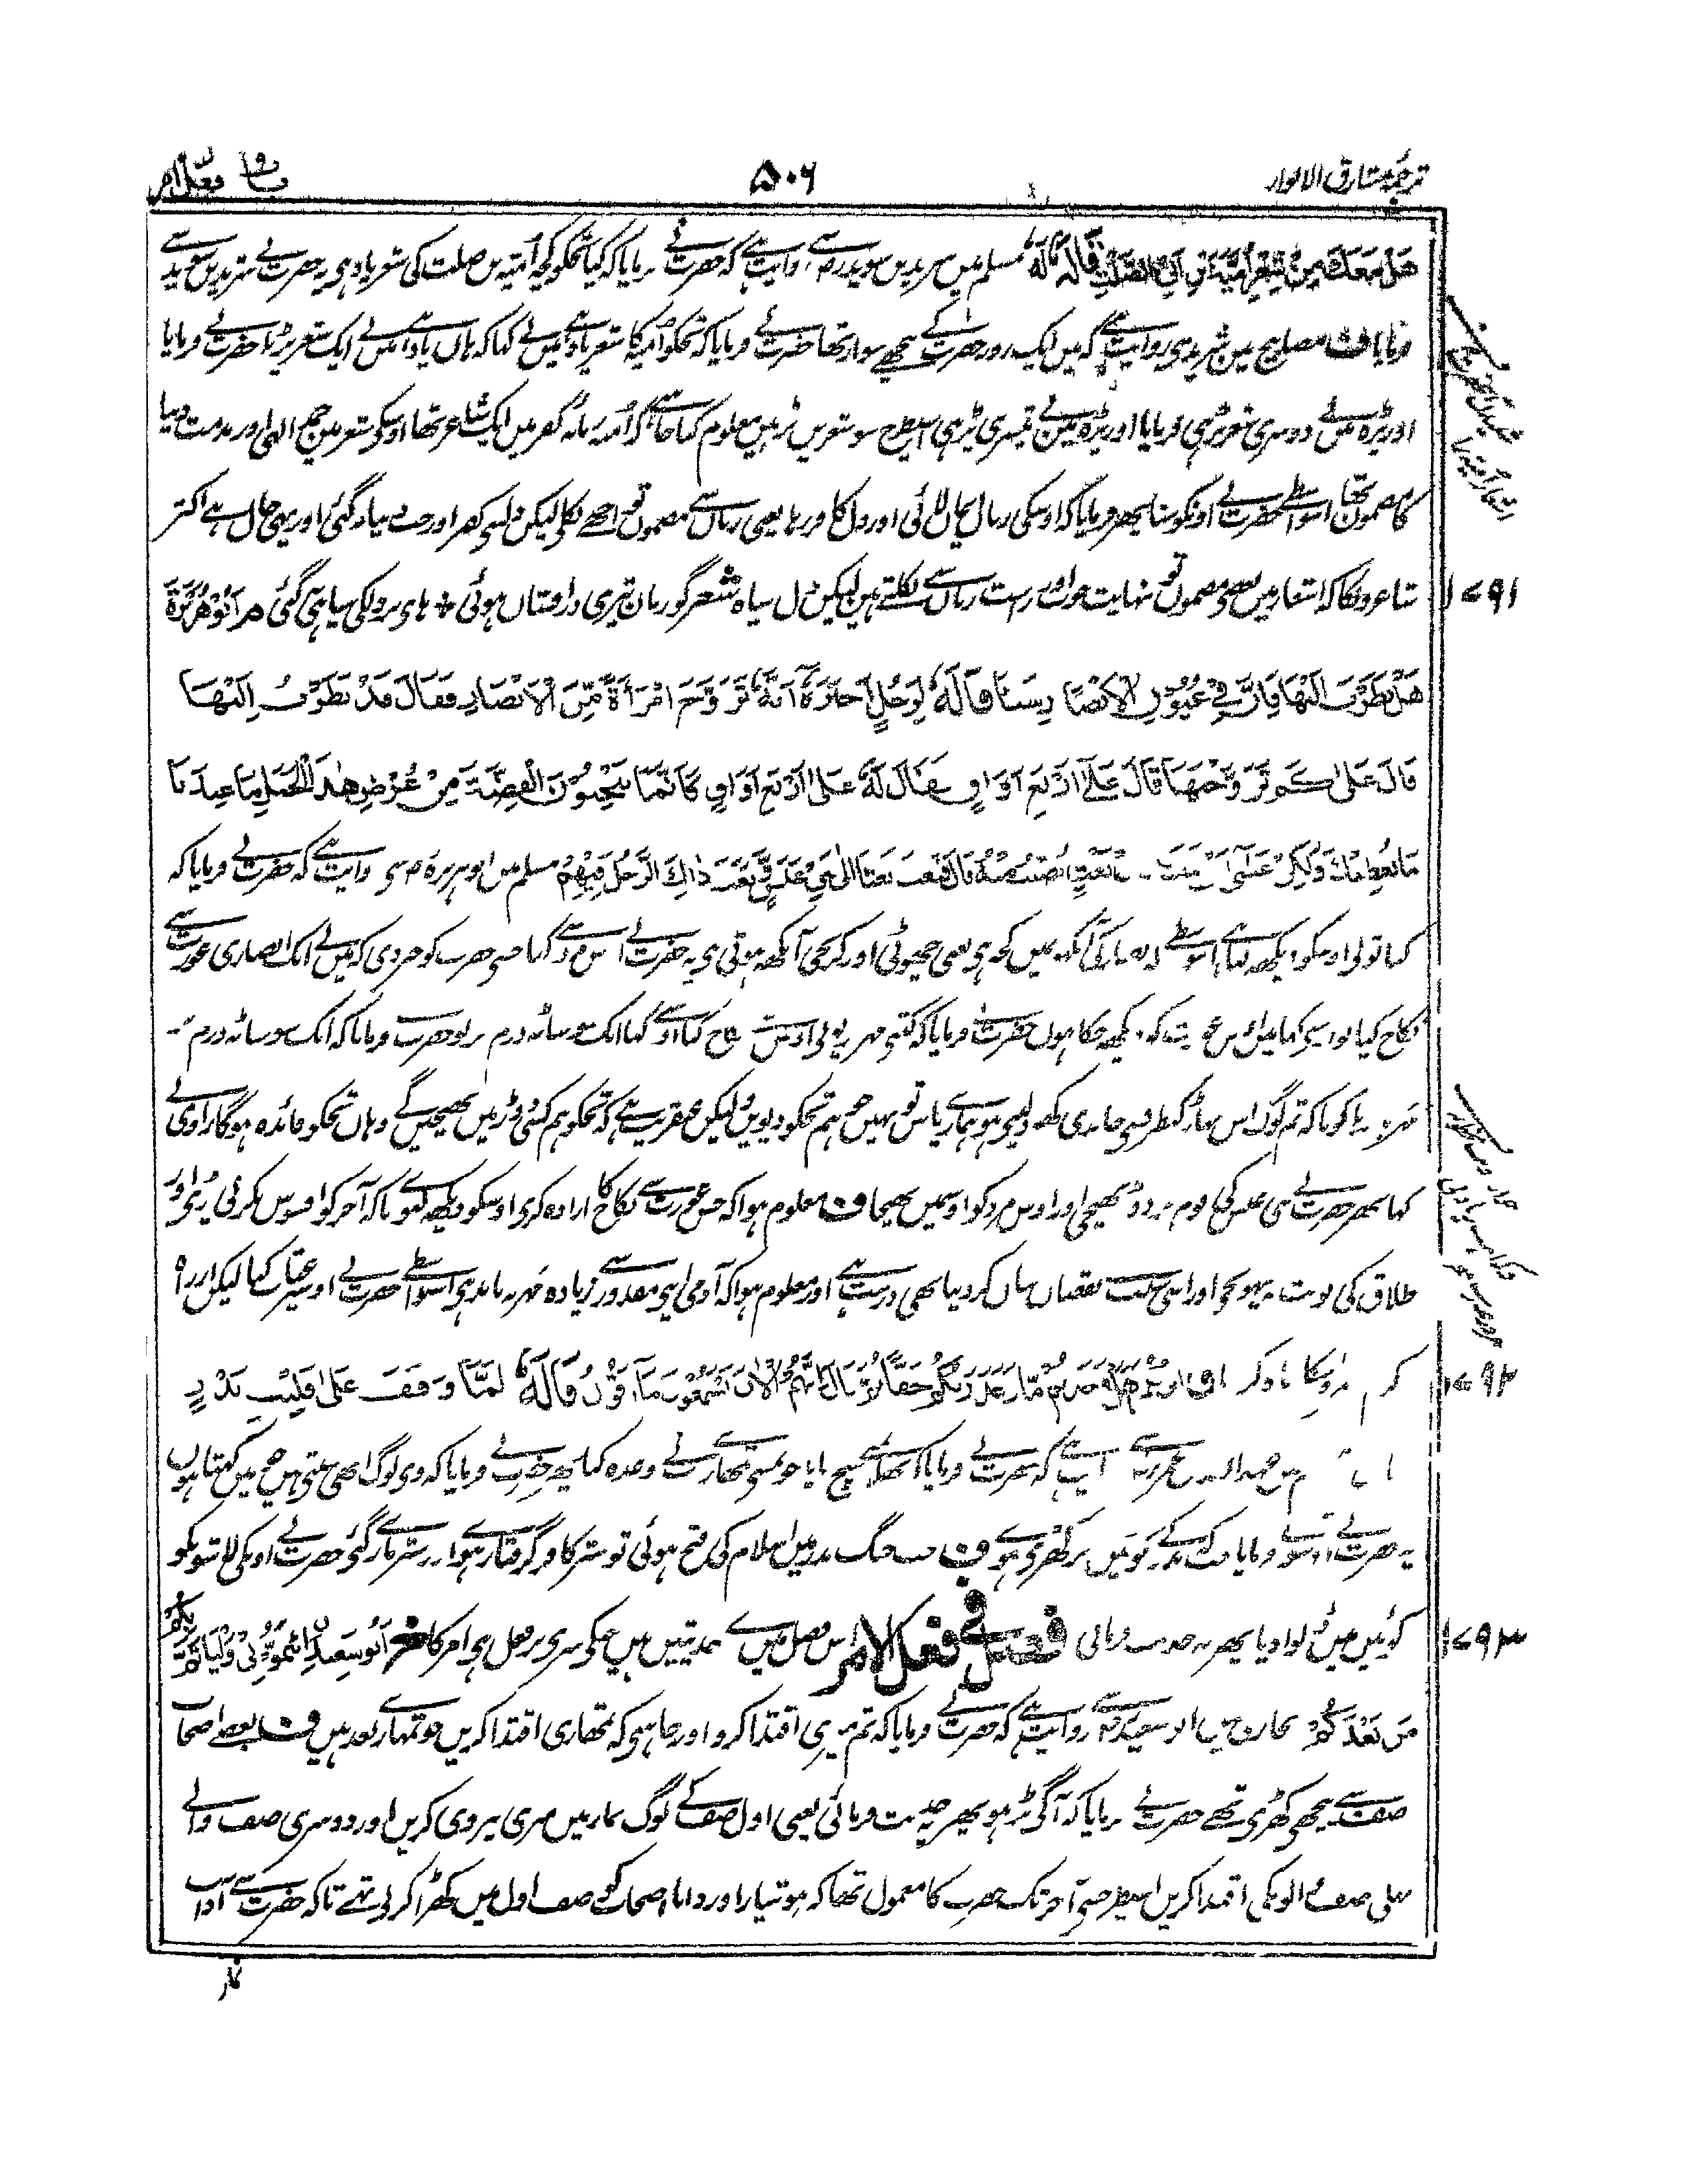 ترجمہ مشارق الانوار
۵۰۶
باب فعل امر
هَلْ مَعَكَ مِنْ شِعْرِ أُمَيَّةَ بْنِ أَبِي الصَّلْتِ قَالَهُ لَهُ مسلم میں شرید بن سوید رض سے روایت ہے کہ حضرت نے فرمایا کہ کیا تجکو کچھ امیّہ بن صلت کی شعر یاد ہی یہ حضرت نے شرید بن سوید سے
فرمایا ف مصابیح میں شرید سے روایت ہے کہ میں ایک روز حضرت کے پیچھے سوار تھا حضرت نے فرمایا کہ تجکو امیہ کا شعر یاد ہے میں نے کہا کہ ہاں یاد ہے میں نے ایک شعر پڑھا حضرت نے فرمایا
اور پڑہ میں نے دوسری شعر پڑہی فرمایا اور پڑہ میں نے تیسری پڑہی اسیطرح سو شعریں پڑہیں معلوم کیا چاہئے کہ امیہ زمانہ کفر میں ایک شاعر تھا اوسکو شعر میں حمد الہی اور مذمت دنیا
کا مضمون تھا اسواسطے حضرت نے اونکو سنا پھر فرمایا کہ اوسکی زبان ایمان لائی اور دل کافر رہا یعنی زبان سے مضمون تو اچھے نکلی لیکن دلمیں کفر اور حب دنیا رہ گئی اور یہی حال ہے اکثر
شاعرونکا کہ اشعار میں بعضے مضمون تو نہایت خوب اور درست زبان سے نکلتے ہیں لیکن دل سیاہ شعر گو زبان تیری در افشاں ہوئی + ہای پر دلکی سیاہی نہ گئی م ابو هريرة
۱۷۹۱
هَلْ نَظَرْتَ إِلَيْهَا فَإِنَّ فِي عُيُونِ الْأَنْصَارِ شَيْئًا قَالَهُ لِرَجُلٍ أَخْبَرَهُ أَنَّهُ تَزَوَّجَ امْرَأَةً مِّنَ الْأَنْصَارِ فَقَالَ قَدْ نَظَرْتُ إِلَيْهَا
قَالَ عَلَى كَمْ تَزَوَّجْتَهَا قَالَ عَلَى أَرْبَعِ أَوَاقٍ فَقَالَ لَهُ عَلَى أَرْبَعِ أَوَاقٍ كَأَنَّمَا تَنْحِتُونَ الْفِضَّةَ مِنْ عُرْضِ هَذَا الْجَبَلِ مَا عِنْدَنَا
مَا نُعْطِيكَ وَلَكِنْ عَسَى أَنْ نَبْعَثَكَ فِي بَعْثٍ تُصِيبُ مِنْهُ قَالَ فَبَعَثَ بَعْثًا إِلَى بَنِي عَبْسٍ بَعَثَ ذَلِكَ الرَّجُلَ فِيهِمْ مسلم میں ابو ہریرہ رض سے روایت ہے کہ حضرت نے فرمایا کہ
کیا تونی اوسکو دیکھ لیا ہے اسواسطے کہ انصار کی آنکھوں میں کچھ ہی یعنی چھوٹی اور کرنجی آنکھ ہوتی ہی یہ حضرت نے اس مرد سے کہا جسنی حضرت کو خبر دی کہ میں نے ایک انصاری عورت سے
نکاح کیا تو اسنی کہا میں اس عورت کو دیکھ چکا ہوں حضرت نے فرمایا کہ کتنی مہر پر تونی اوس سے نکاح کیا اوسنے کہا ایک سو ساٹھ درم پر تو حضرت نے فرمایا کہ ایک سو ساٹھ درم پر
مہر گویا کہ تم لوگ اس پہاڑ کی طرف سے چاندی کھود لیتی ہو ہمارے پاس تو نہیں جو ہم تجکو دیویں لیکن عنقریب ہے کہ تجکو ہم کسی دوڑ میں بھیجیں گے وہاں تجکو فائدہ ہوگا راوی نے
کہا پھر حضرت نے بنی عبس کی قوم پر دوڑ بھیجی اور اوس مرد کو اوسمیں بھیجا ف معلوم ہوا کہ جس عورت سے نکاح کا ارادہ کری اوسکو دیکھ لیوے تاکہ آخر کو افسوس نکرنی پڑی اور
طلاق کی نوبت نہ پہونچی اور اسی سبب نقصان بیان کر دینا بھی درست ہے اور معلوم ہوا کہ آدمی اپنی مقدور سے زیادہ مہر نہ باندہی اسواسطے حضرت نے اوسپر عتاب کیا لیکن
۱۷۹۲
هَلْ وَجَدْتُمْ مَّا وَعَدَ رَبُّكُمْ حَقًّا ثُمَّ قَالَ إِنَّهُمُ الْآنَ يَسْمَعُونَ مَا أَقُولُ قَالَهُ لَمَّا وَقَفَ عَلَى قَلِيبِ بَدْرٍ
عبد اللہ بن عمر رض سے روایت ہے کہ حضرت نے فرمایا کہ بھلا تمنے سچ پایا جو تمسی تمھارے رب نے وعدہ کیا پھر حضرت نے فرمایا کہ وی لوگ ابھی سنتی ہیں جو میں کہتا ہوں
یہ حضرت نے اسوقت فرمایا جب کہ بدر کے کوئیں پر کھڑے ہوئے ف جب جنگ بدر میں اسلام کی فتح ہوئی تو ستر کافر گرفتار ہوئے اور ستر مارے گئی حضرت نے اونکی لاشونکو
کوئیں میں ڈلوا دیا پھر یہ حدیث فرمائی فصل في فعل الامر اس فصل میں حدیثیں ہیں جنکی سری پر فعل ہی امر کا خ أَبُو سَعِيدٍ اِئْتَمُّوا بِي وَلْيَأْتَمَّ بِكُمْ
۱۷۹۳
مَنْ بَعْدَكُمْ بخاری میں ابو سعید رض سے روایت ہے کہ حضرت نے فرمایا کہ تم میری اقتدا کرو اور چاہئی کہ تمھاری اقتدا کریں جو تمہارے بعد ہیں ف بعضے اصحاب
صف سے پیچھی کھڑی تھے حضرت نے فرمایا کہ آگی بڑہو پھر حدیث فرمائی یعنی اول صف کے لوگ نماز میں میری پیروی کریں اور دوسری صف والے
پہلی صف والونکی اقتدا کریں اسیطرح سے آخر تک حضرت کا معمول تھا کہ ہوشیار اور دانا اصحاب کو صف اول میں کھڑا کرتے تھے تاکہ حضرت سے آداب
نماز